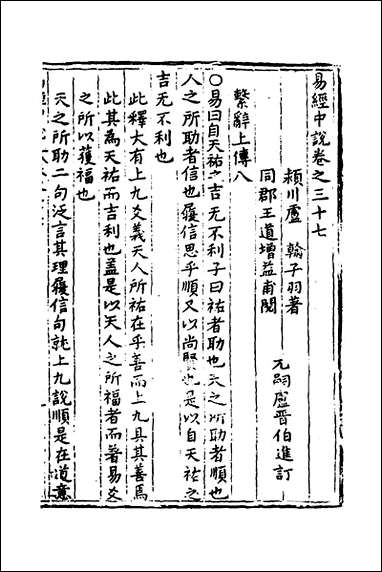 易經中說卷之三十七
潁川盧　翰子羽著
同郡王道增益甫閱
元嗣盧晉伯進訂
繫辭上傳八
○易曰自天祐之吉无不利子曰祐者助也天之所助者順也
人之所助者信也履信思乎順又以尚賢也是以自天祐之
吉无不利也
此釋大有上九爻義天人所祐在乎善而上九具其善焉
此其為天祐而吉利也蓋是以天人之所福者而著易爻
之所以獲福也
天之所助二句泛言其理履信句就上九說順是在道意